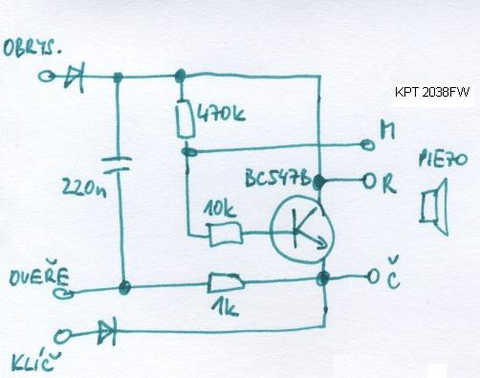 OBRYS.
KPT 2038FW
470k
M
PIEZO
BC547B
220n
R
10k
OVEŘE
Č
1k
KLÍČ